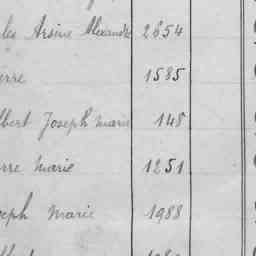 les Arsène Alexandre 2654
erre 1585
lbert Joseph Marie 148
erre Marie 1251
seph Marie 1988